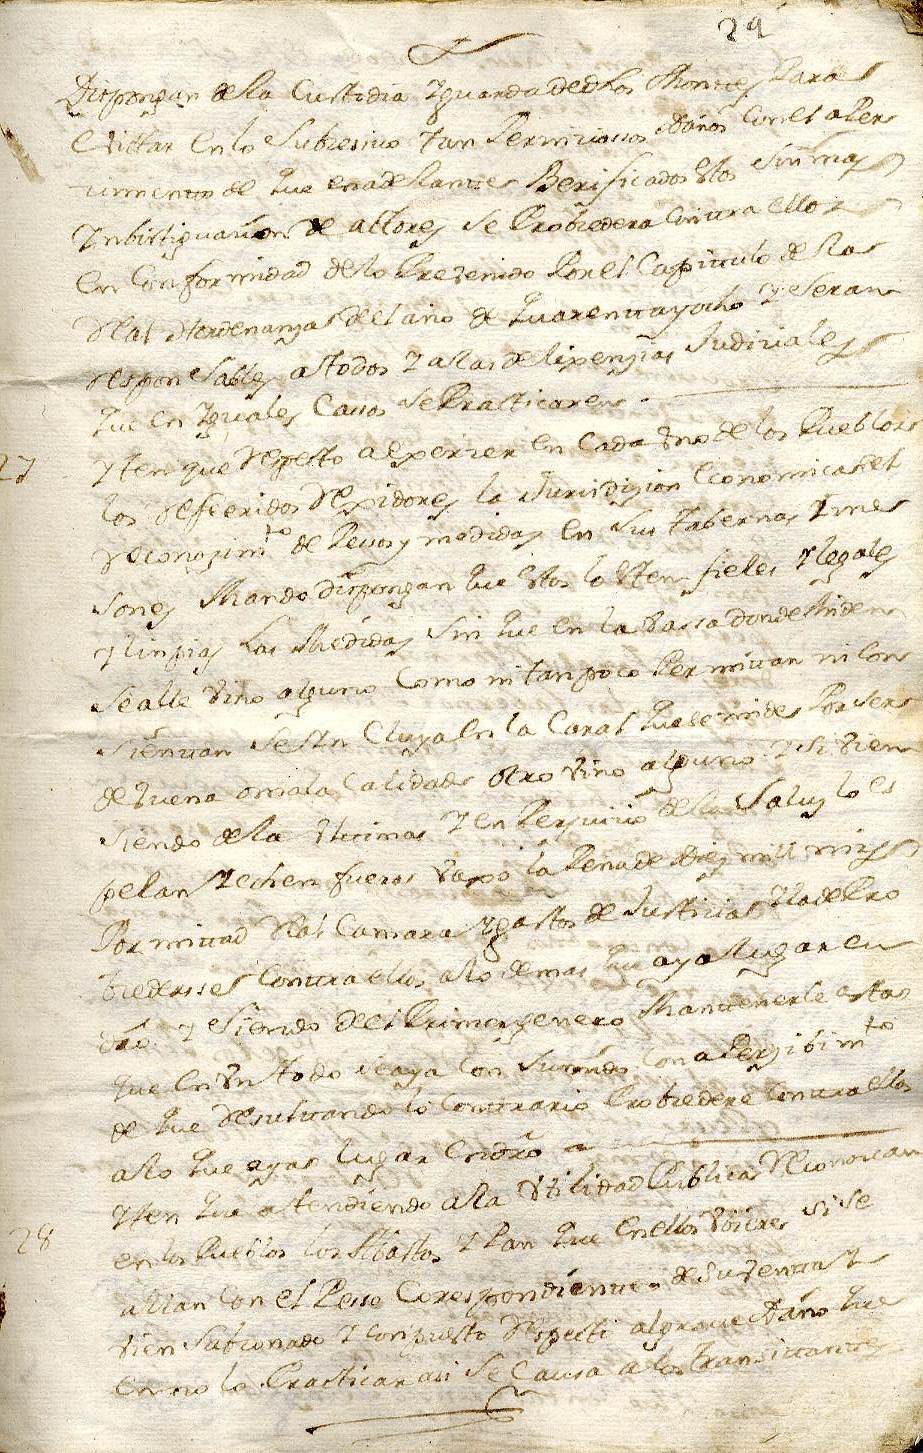 29
Dispongan de la Custodia y guarda de dhos Montes Para
Evittar en lo Subcesivo tan Perniciosos daños Con el aper
civimento de que en adelante Berificados estos sin mas
Ynbistiguazion de autores se Probedera Contra ellos
en Conformidad de lo Prevenido Por el Capitulo de las
Rs Hordenanzas del año de quarenta y ocho y seran
responsables a todos y a las dilixenzias Judiciales
que en Yguales Casos se Practicaren
27
Yten que respecto a exerzer en Cada Uno de los Pueblos
los referidos Rexidores la Jurisdizion Economica en el
reconozimto de Pesos y medidas en sus tabernas y mes
sones Mando dispongan que estos lo esten fieles y legales
y linpias Las Medidas sin que en la Vassa donde Miden
se alle vino alguno Como ni tanpoco Permitan ni Con
sientan se yn Cluya en la Caral que se mide Por ser
de buena o mala Calidad otro vino alguno y si vien
siendo de la Ultima y en Perjuicio de la Salud lo es
pelan y echen fuera vajo la Pena de Diez mill mrs
Por mitad Rl Camara y gastos de Justicia y la de Pro
bederse Contra ellos a lo demas que aya lugar en
dro y siendo del Primer genero Mantenerle asta
que en Un todo se aya Con sumido Con aperzibimto
de que resultando lo Contrario Probedere Contra ellos
a lo que aya lugar en dro
28
Yten que atendiendo a la Utilidad Publica reconozcan
en los Pueblos los Abastos y Pan que en ellos Ubiere si se
allan Con el Peso Corespondiente de su venta y
vien sazonado y conpuesto respecto al grave daño que
en no lo Practicar asi se Causa a los transitantes